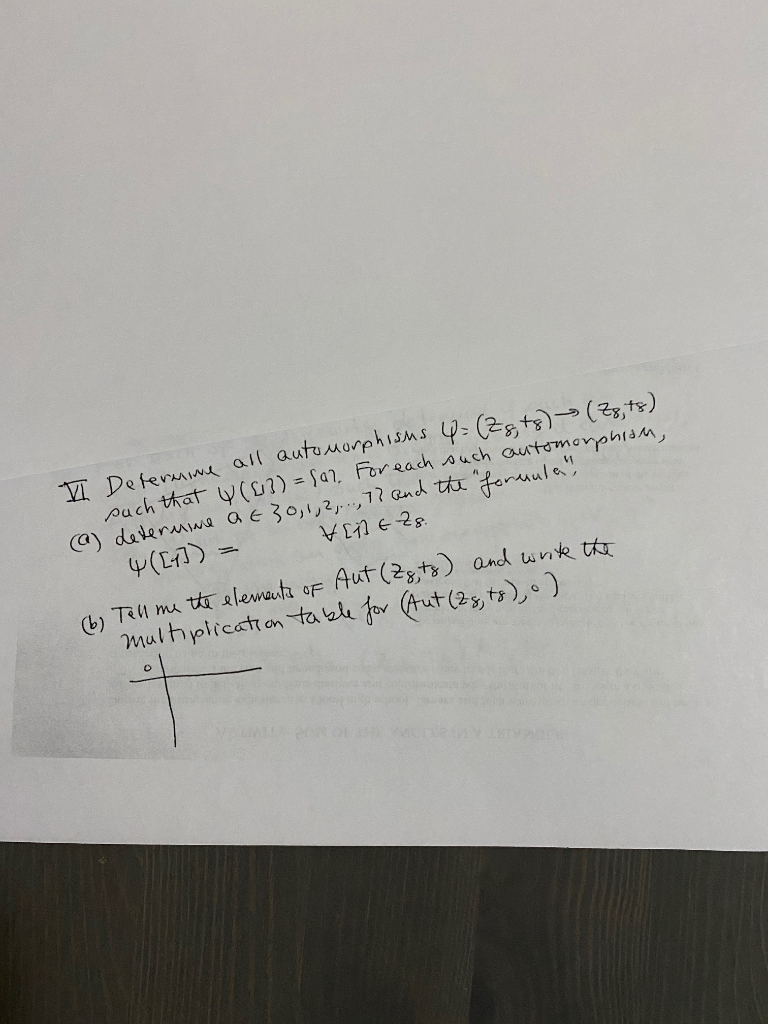 VI Determine all automorphisms φ = (Z8,+8) → (Z8,+8)
such that ψ([1]) = [a]. For each such automorphism,
(a) determine a ∈ {0,1,2,...,7} and the "formula",
ψ([j]) = ∀ [j] ∈ Z8.
(b) Tell me the elements of Aut (Z8,+8) and write the
multiplication table for (Aut (Z8,+8), ∘)
∘